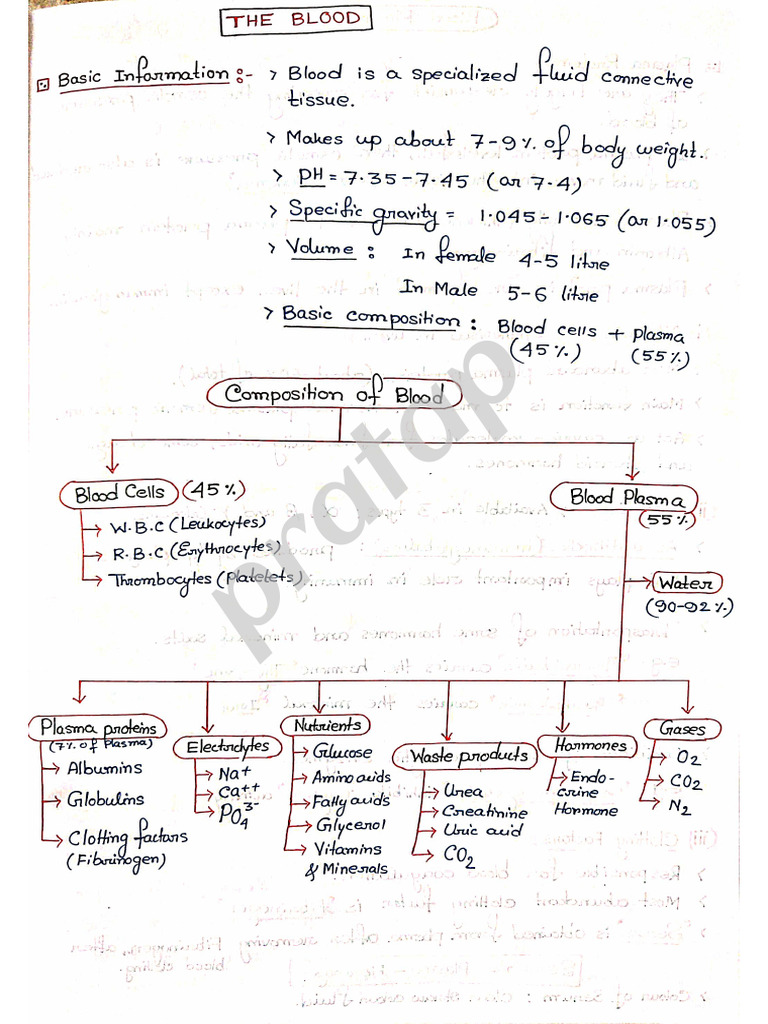 THE BLOOD
Basic Information :- > Blood is a specialized fluid connective
tissue.
> Makes up about 7-9% of body weight.
> PH = 7.35-7.45 (or 7.4)
> Specific gravity = 1.045-1.065 (or 1.055)
> Volume : In female 4-5 litre
In Male 5-6 litre
> Basic composition : Blood cells + plasma
(45%) (55%)
Composition of Blood
Blood Cells (45%)
Blood Plasma
(55%)
→ W.B.C (Leukocytes)
→ R.B.C (Erythrocytes)
→ Thrombocytes (Platelets)
→ Water
(90-92%)
pratap
Plasma proteins
(7% of Plasma)
→ Albumins
→ Globulins
→ Clotting factors
(Fibrinogen)
Electrolytes
→ Na+
→ Ca++
→ PO₄³⁻
Nutrients
→ Glucose
→ Amino acids
→ Fatty acids
→ Glycerol
→ Vitamins
& Minerals
Waste products
→ Urea
→ Creatinine
→ Uric acid
→ CO2
Hormones
→ Endo-
crine
Hormone
Gases
→ O2
→ CO2
→ N2